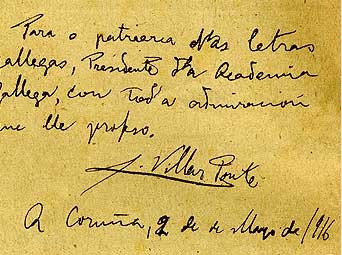 Para o patriarca d'as letras
allegas, Presidente d'a Academia
allega, con tod'a admiración
ue lle profeso.
A. Villar Ponte
A Coruña, 2 de de Mayo de 1916